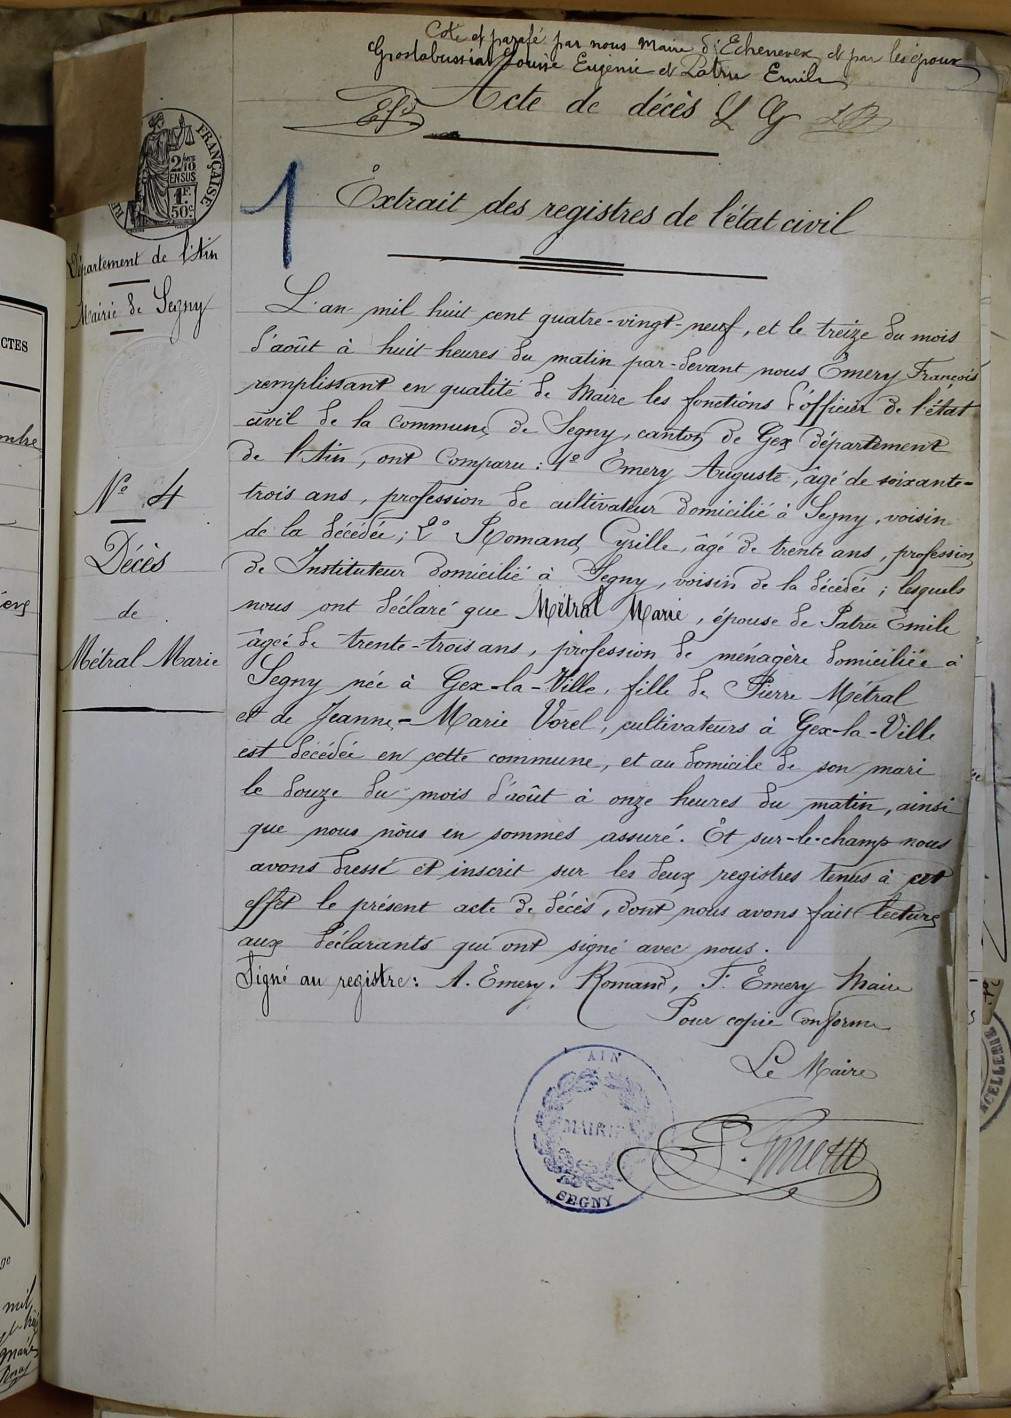 Coté et parafé par nous Maire d'Echenevex et par les époux
Grosbabussiat Louise Eugénie et Patru Emile
Acte de décès L G
FRANÇAISE
2/10
EN SUS
1F.
50c
1
Extrait des registres de l'état civil
Département de l'Ain
Mairie de Segny
L'an mil huit cent quatre-vingt-neuf, et le treize du mois
d'août à huit heures du matin par-devant nous Émery François
remplissant en qualité de Maire les fonctions d'officier de l'état
civil de la Commune de Segny, canton de Gex département
de l'Ain, ont Comparu : 1º Émery Auguste, âgé de soixante-
trois ans, profession de cultivateur domicilié à Segny, voisin
de la décédée ; 2º Romand Cyrille, âgé de trente ans, profession
de Instituteur domicilié à Segny, voisin de la décédée ; lesquels
nous ont déclaré que Métral Marie, épouse de Patru Emile
âgée de trente-trois ans, profession de ménagère domiciliée à
Segny née à Gex-la-Ville, fille de Pierre Métral
et de Jeanne-Marie Vorel, cultivateurs à Gex-la-Ville
est décédée en cette commune, et au domicile de son mari
le douze du mois d'août à onze heures du matin, ainsi
que nous nous en sommes assuré. Et sur-le-champ nous
avons dressé et inscrit sur les deux registres tenus à cet
effet le présent acte de décès, dont nous avons fait lecture
aux déclarants qui ont signé avec nous.
Signé au registre : A. Émery. Romand, F. Émery Maire
Pour copie Conforme
Le Maire
F. Emery
Nº 4
Décès
de
Métral Marie
AIN
MAIRIE
SEGNY
CTES